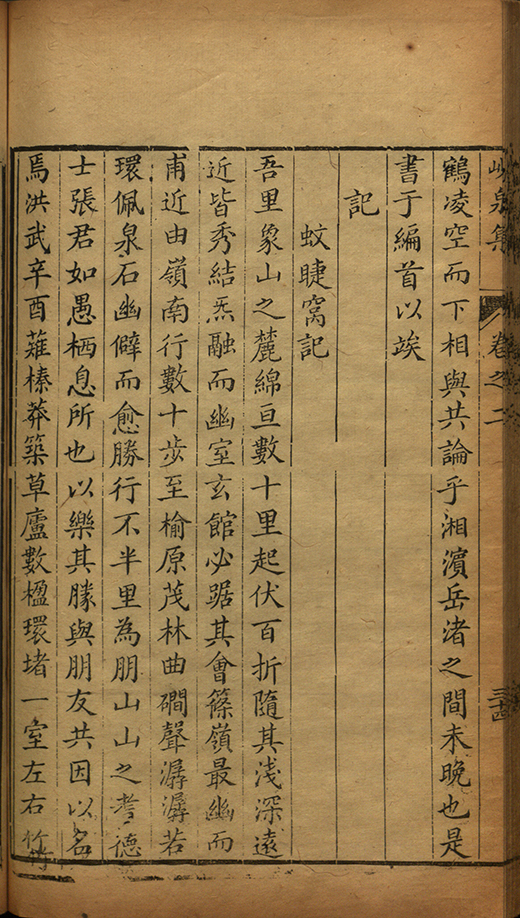 峴泉集 卷之二 三十四
鶴凌空而下相與共論乎湘濵岳渚之間未晚也是
書于編首以竢
記
蚊睫窩記
吾里象山之麓綿亘數十里起伏百折隨其淺深遠
近皆秀結炁融而幽室玄館必踞其會篠嶺最幽而
甫近由嶺南行數十步至榆原茂林曲磵聲潺潺若
環佩泉石幽僻而愈勝行不半里為朋山山之耆德
士張君如愚栖息所也以樂其勝與朋友共因以名
焉洪武辛酉薙榛莽築草廬數楹環堵一室左右竹